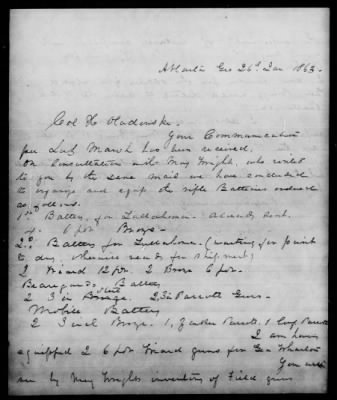 Atlanta Geo 26th Jan 1863.
Col H Oladowski.
Your Communication
per Lieut. March has been received.
On Consultation with Maj Wright, who writes
to you by the same mail we have concluded
to organize and equip the rifle Batteries ordered
as follows.
1st Battery, for Tullahoma. Already sent.
4. 6 pdr Bronze.
2nd Battery for Tullahoma. (waiting for paint
to dry, otherwise ready for shipment)
2 12 pdr. 2 Bronze 6 pdr.
Beauregard's Battery
2 3 in Steel 2, 3 in Parrott Guns.
Mobile Battery
2 3 inch Bronze. 1, Parrott. 1 Parrott
I am having
equipped 2 6 pdr guns for Gen Wharton
You will
see by Maj Wrights inventory of Field guns